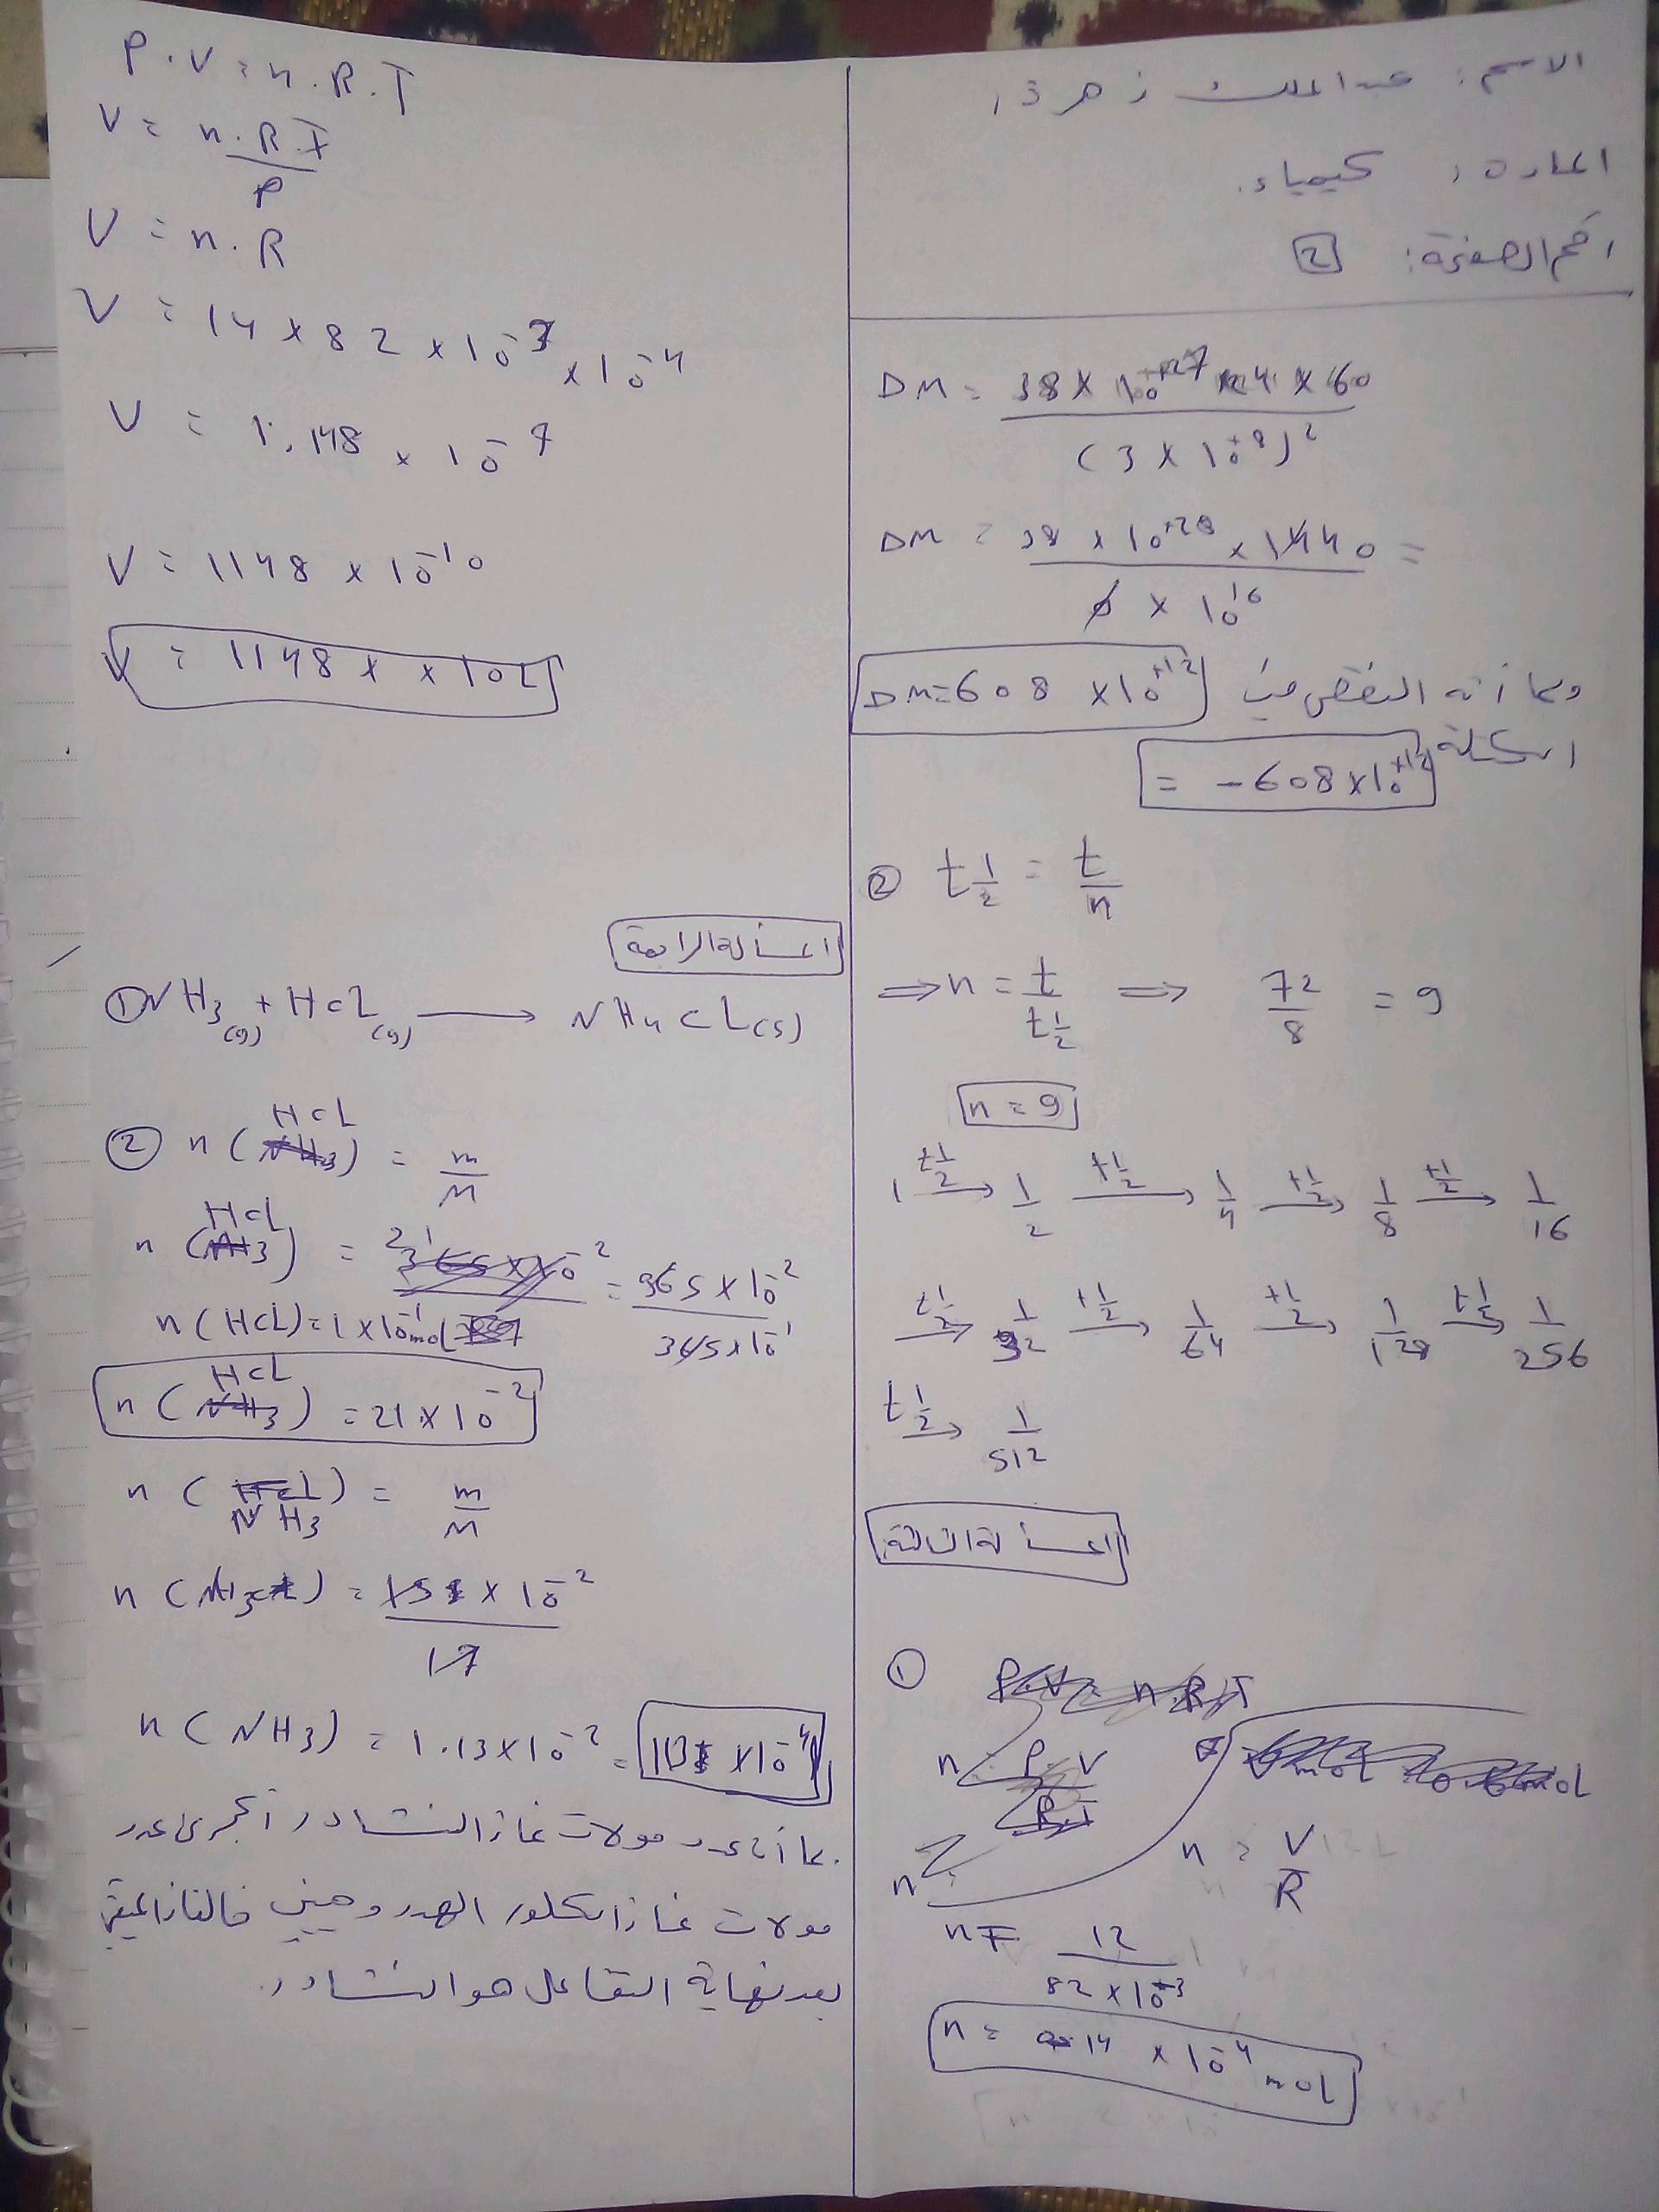 الاسم: عبد الملك زهرة
المادة: كيمياء.
رقم الصفحة: 2
DM = 38 × 10^+27 × 24 × 60 / (3 × 10^+8)^2
DM = 38 × 10^+28 × 1440 / 9 × 10^16 =
DM = 608 × 10^+12 وبما أنه النقص في
الكتلة = -608 × 10^+12
② t1/2 = t/n
⇒ n = t/t1/2 ⇒ 72/8 = 9
n = 9
1 —t1/2→ 1/2 —t1/2→ 1/4 —t1/2→ 1/8 —t1/2→ 1/16
—t1/2→ 1/32 —t1/2→ 1/64 —t1/2→ 1/128 —t1/2→ 1/256
—t1/2→ 1/512
المسألة الثالثة
① P.V = n.R.T
n = P.V / R.T
n = V/R
n = 12 / 82 × 10^-3
n = 14 × 10^-4 mol
P.V = n.R.T
V = n.R.T / P
V = n.R
V = 14 × 82 × 10^-3 × 10^-4
V = 1.148 × 10^-7
V = 1148 × 10^-10
V = 1148 × × 10 L
المسألة الرابعة
① NH3(g) + HCL(g) ⟶ NH4CL(s)
② n(HCL) = m/M
n(HCL) = 365 × 10^-2 / 365 × 10^-1
n(HCL) = 1 × 10^-1 mol
n(HCL) = 21 × 10^-2
n(NH3) = m/M
n(NH3) = 151 × 10^-2 / 17
n(NH3) = 1.13 × 10^-2 = 113 × 10^-4
بما أن عدد مولات غاز النشادر أكبر من عدد
مولات غاز الكلور الهدروجيني فالغاز المتبقي
بعد نهاية التفاعل هو النشادر.